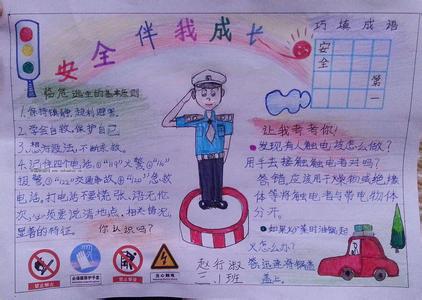 安全伴我成长
巧填成语
安
全
第
一
临危逃生的基本原则
1.保持镇静,趋利避害。
2.学会自救,保护自己
3.想方设法,不断求救。
4.记住四个电话,①“119”火警,②“110”
报警,③“122”交通事故,④“120”急救
电话,打电话不要慌张、语无伦
次,必须要说清地点,相关情况,
显著的特征。
你认识吗?
让我考考你!
发现有人触电该怎么做?
用手去接触触电者对吗?
答:错,应该用干燥物或绝缘
体等将触电者与带电物体
分开。
如果炒菜时油锅起
火怎么办?
答:迅速将锅盖
盖上。
禁止烟火
必须戴防护手套
当心触电
赵行淑
二.1班